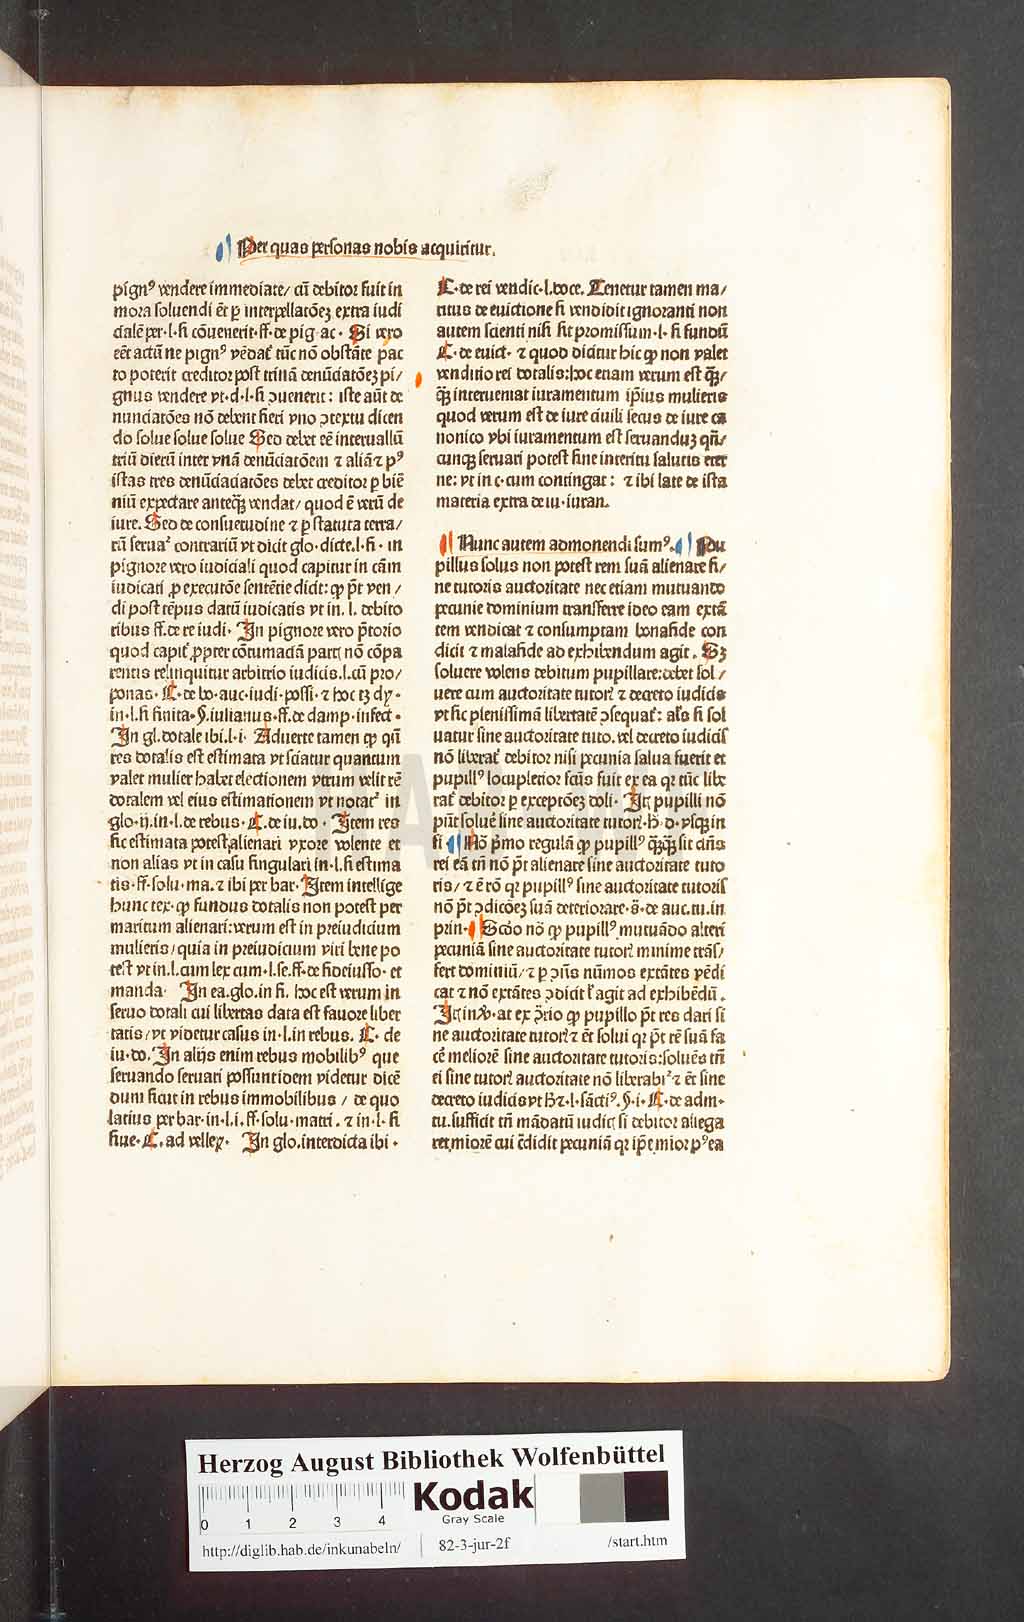 Per quas personas nobis acquiritur.
pignꝰ vendere immediate/ cū debitor fuit in
mora soluendi ēt ꝑ interpellatōeȝ extra iudi
cialē per·l·si cōuenerit·ff·de pig·ac· Si vero
eēt actū ne pignꝰ vēdat᷑ tūc nō obstāte pac
to poterit creditor post trinā denūciatōeȝ pi/
gnus vendere vt·d·l·si ɔuenerit: iste aūt de
nunciatōes nō debent fieri vno ɔtextu dicen
do solue solue solue Sed debet eē interuallū
triū dierū inter vnā denūciatōem ⁊ aliā ⁊ pꝰ
istas tres denūciaciatōes debet creditor ꝑ biē
niū expectare anteqȝ vendat/ quod ē verū de
iure. Sed de consuetudine ⁊ ꝑ statuta terra/
rū seruat᷑ contrariū vt dicit glo·dicte·l·si· in
pignore vero iudiciali quod capitur in cām
iudicati ꝓ executōe sentētie dicit: ꝙ p̄t ven/
di post tēpus datū iudicatis vt in. l. debito
ribus ff.de re iudi· In pignore vero p̄torio
quod capit᷑ ꝓpter cōtumaciā partꝭ nō cōpa
rentis relinquitur arbitrio iudicis.l.cū pro/
ponas· C·de bo·auc·iudi·possi·⁊ hoc tȝ dy·
in·l·si finita·§.iulianus·ff·de damp·infect·
In gl.dotale ibi·l·i· Aduerte tamen ꝙ qn̄
res dotalis est estimata vt sciatur quantum
valet mulier habet electionem vtrum velit rē
dotalem vel eius estimationem vt notat᷑ in
glo·ij.in·l.de rebus·C·de iu.do· Item res
sic estimata potest alienari vxore volente et
non alias vt in casu singulari in·l·si estima
tis·ff·solu·ma.⁊ ibi per bar·Item intellige
hunc tex·ꝙ fundus dotalis non potest per
maritum alienari:verum est in preiudicium
mulieris/quia in preiudicium viri bene po
test vt in.l.cum lex cum·l.se.ff·de fideiusso·et
manda· In ea.glo.in fi. hoc est verum in
seruo dotali cui libertas data est fauore liber
tatis/vt videtur casus in·l.in rebus. C· de
iu·do.In alijs enim rebus mobilibꝰ que
seruando seruari possunt idem videtur dicē
dum sicut in rebus immobilibus / de quo
latius per bar·in·l.i.ff·solu·matri. ⁊ in·l·si
siue·C. ad velleȝ· In glo.interdicta ibi·
C·de rei vendic·l.doce. Tenetur tamen ma/
ritus de euictione si vendidit ignoranti non
autem scienti nisi sit promissum·l·si fundū
C·de euict· ⁊ quod dicitur hic ꝙ non valet
venditio rei dotalis:hoc etiam verum est qȝ/
qȝ interueniat iuramentum ip̄ius mulieris
quod verum est de iure ciuili secus de iure ca
nonico vbi iuramentum est seruanduȝ qn̄/
cunqȝ seruari potest sine interitu salutis eter
ne: vt in c·cum contingat: ⁊ ibi late de ista
materia extra de iu·iuran.
Nunc autem admonendi sumꝰ. Pu
pillus solus non potest rem suā alienare si/
ne tutoris auctoritate nec etiam mutuando
pecunie dominium transferre ideo eam extā
tem vendicat ⁊ consumptam bonafide con
dicit ⁊ malafide ad exhibendum agit. Sȝ
soluere volens debitum pupillare:debet sol/
uere cum auctoritate tutorꝭ ⁊ decreto iudicis
vt sic plenissimā libertatē ɔsequat᷑: al's si sol
uatur sine auctoritate tuto.vel decreto iudicis
nō liberat᷑ debitor nisi pecunia salua fuerit et
pupillꝰ locupletior fcūs fuit ex ea qr tūc libe
rat᷑ debitor ꝑ exceptōeȝ doli· Itꝭ pupilli nō
pn̄t soluē sine auctoritate tutorꝭ·h·d·vsqȝ in
fi· Nō p̄mo regulā ꝙ pupillꝰ qȝqȝ sit dn̄s
rei eā tn̄ nō p̄t alienare sine auctoritate tuto
ris/ ⁊ ē rō qr pupillꝰ sine auctoritate tutoris
nō p̄t ɔdicōeȝ suā deteriorare·s̄·de auc.tu.in
prin· Scdo nō ꝙ pupillꝰ mutuādo alteri
pecuniā sine auctoritate tutorꝭ minime trās/
fert dominiū/⁊ ꝑ ɔn̄s nūmos extātes vēdi
cat ⁊ nō extātes ɔdicit l' agit ad exhibēdū.
ne auctoritate tutorꝭ ⁊ ēt solui qr p̄t rē suā fa
cē meliorē sine auctoritate tutoris:soluēs tn̄
ei sine tutorꝭ auctoritate nō liberabit᷑ ⁊ ēt sine
decreto iudicis vt h ⁊·l·sāctiꝰ.§·i·C·de adm·
tu.sufficit tn̄ mādatū iudicꝭ si debitor allega
Herzog August Bibliothek Wolfenbüttel
0 1 2 3 4
Kodak
Gray Scale
http://diglib.hab.de/inkunabeln/ 82-3-jur-2f /start.htm